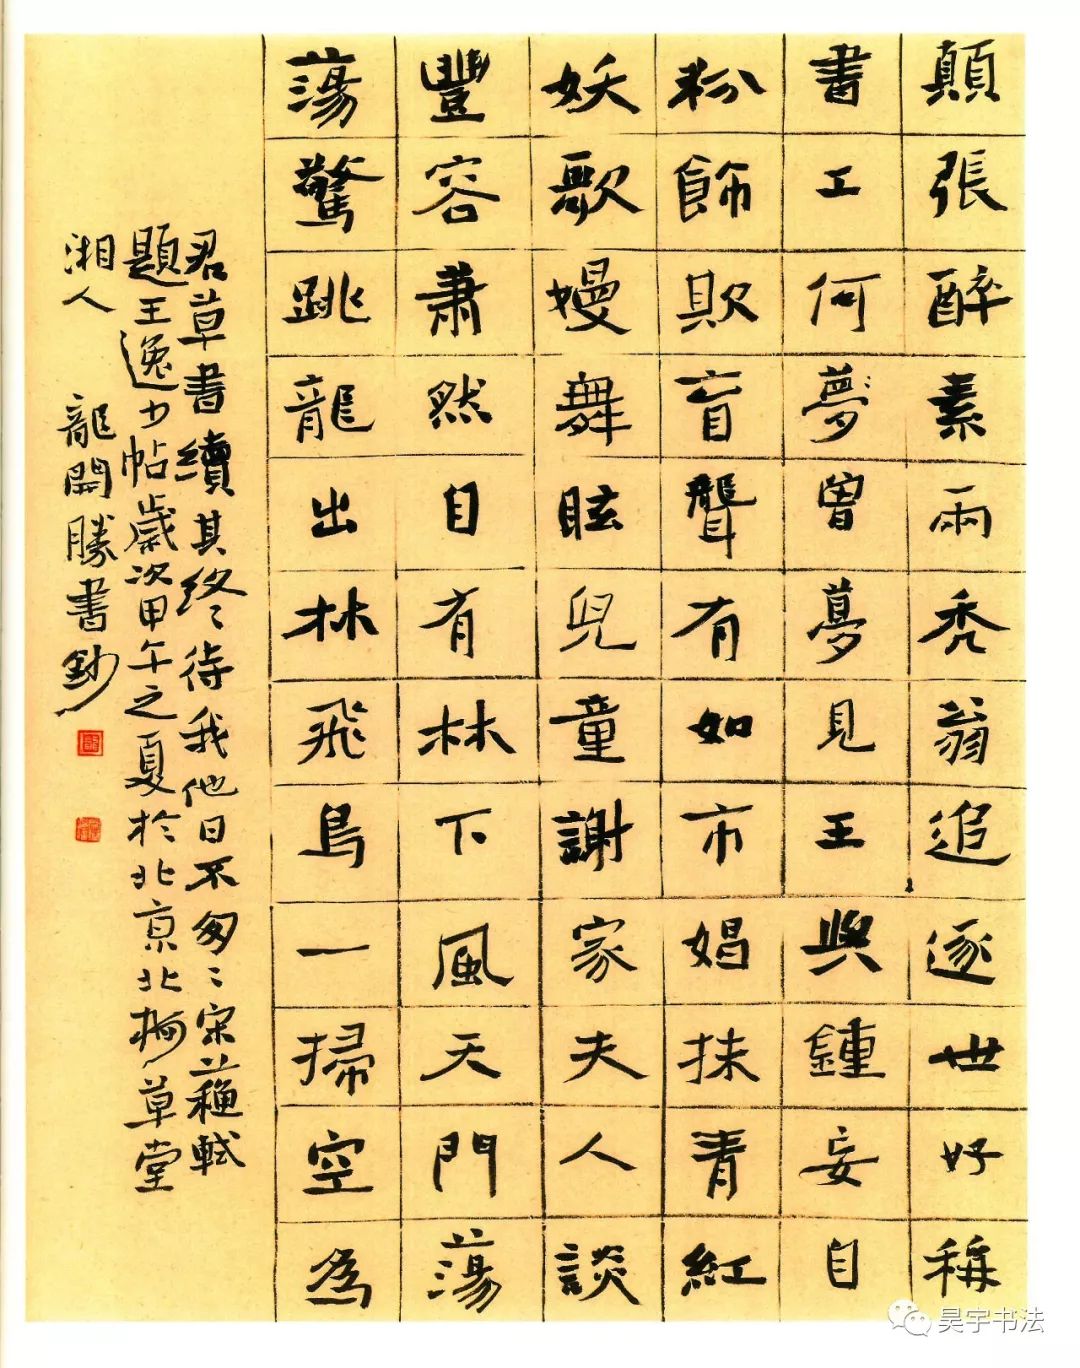 顛張醉素兩禿翁追逐世好稱
書工何夢曾夢見王與鍾妄自
粉飾欺盲聾有如市娼抹青紅
妖歌嫚舞眩兒童謝家夫人談
豐容蕭然自有林下風天門蕩
蕩驚跳龍出林飛鳥一掃空為
君草書續其終待我他日不匆〻宋蘇軾
題王逸少帖歲次甲午之夏於北京北草堂
湘人 龍開勝書鈔
昊宇书法